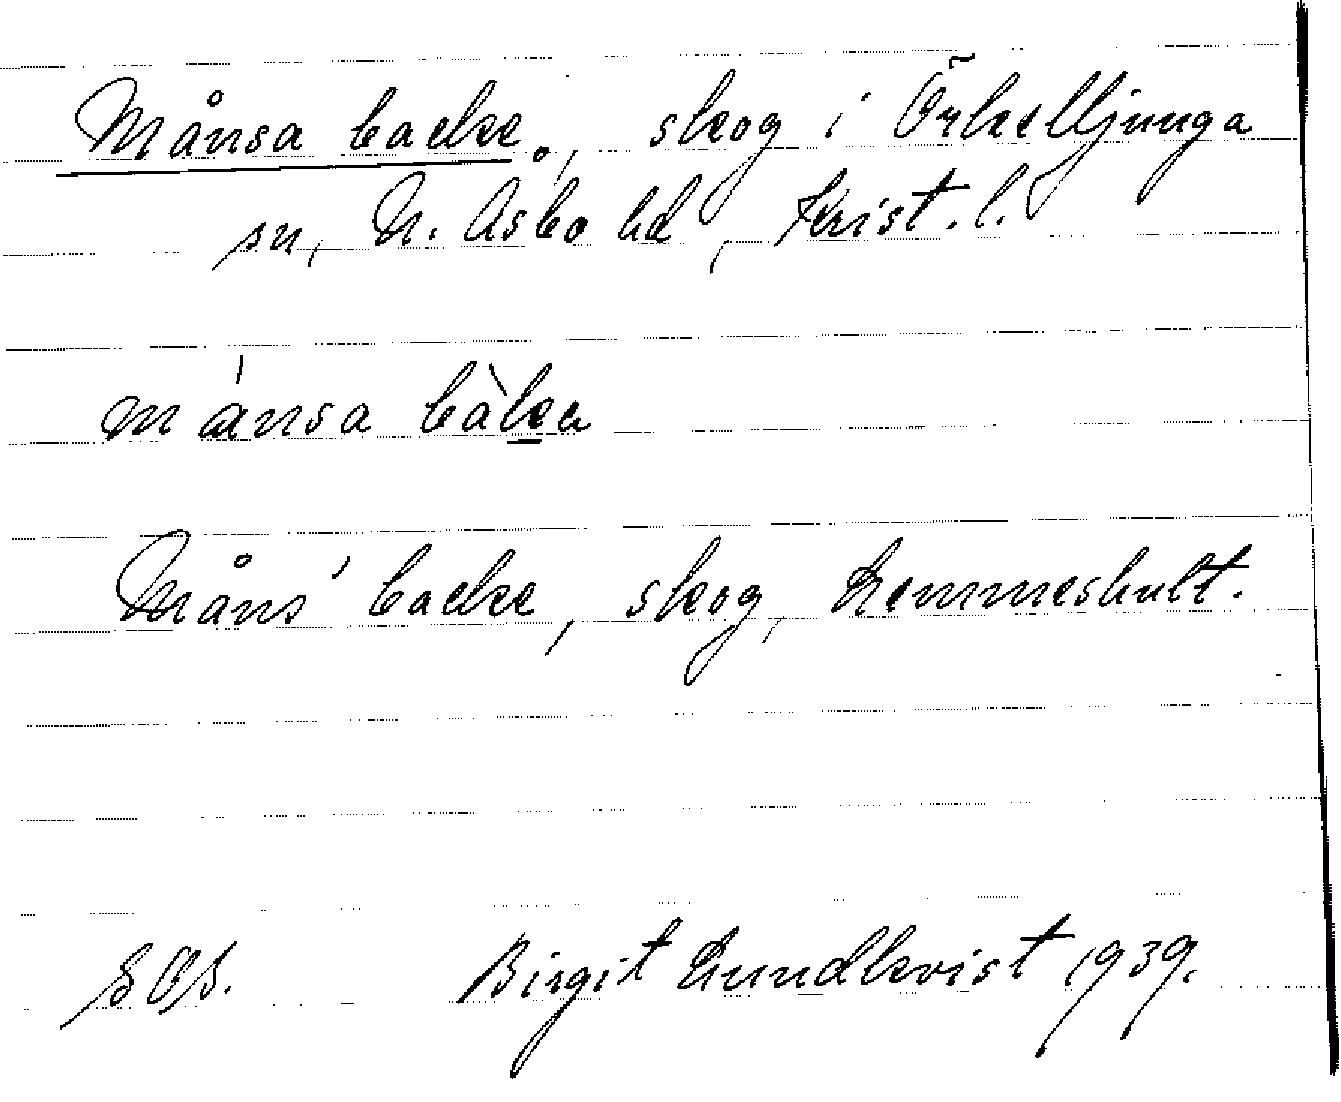 Månsa backe., skog i Örkelljunga
sn, N. Åsbo hd, Krist. l.
månsa bàka
Måns' backe, skog, Lemmeshult.
Birgit Lundkvist 1939.